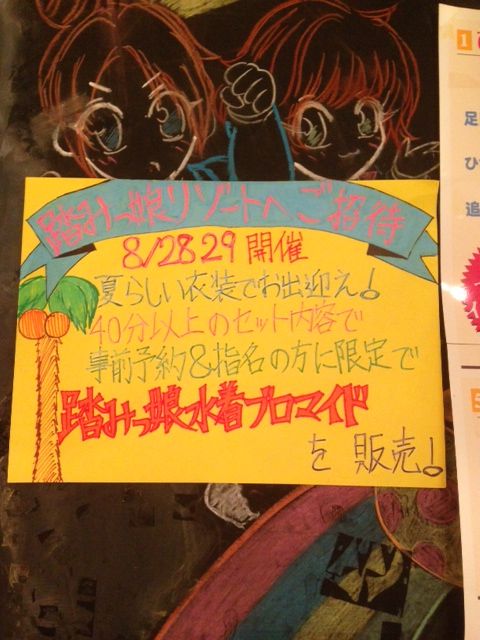 踏みっ娘リゾートへご招待
8/28 29 開催
夏らしい衣装でお出迎え！
40分以上のセット内容で
事前予約&指名の方に限定で
踏みっ娘水着ブロマイド
を販売！
1
足
ひ
追